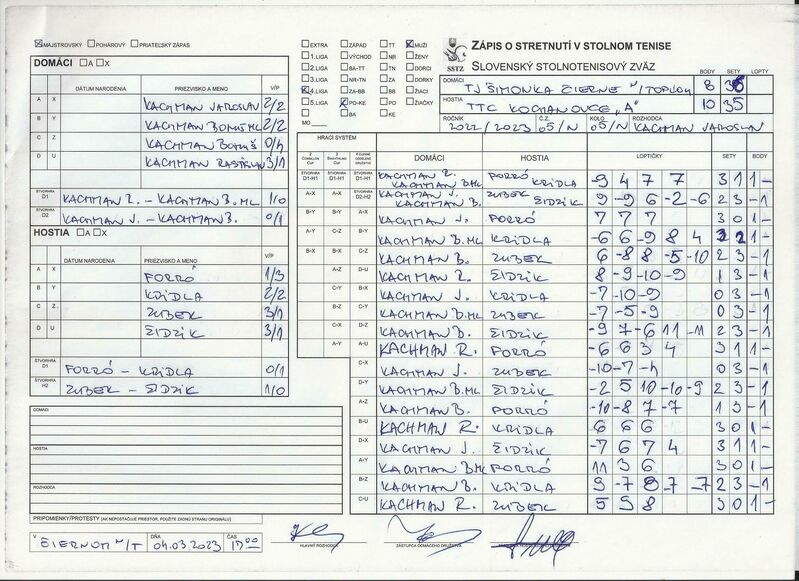 MAJSTROVSKÝ POHÁROVÝ PRIATEĽSKÝ ZÁPAS
DOMÁCI A X
DÁTUM NARODENIA PRIEZVISKO A MENO V/P
A X KACHMAN JAROSLAV 2/2
B Y KACHMAN BOHUŠ ML 2/2
C Z KACHMAN BOHUŠ 0/4
D U KACHMAN RASTISLAV 3/1
ŠTVORHRA D1 KACHMAN R. - KACHMAN B. ML 1/0
ŠTVORHRA D2 KACHMAN J. - KACHMAN B. 0/1
HOSTIA A X
DÁTUM NARODENIA PRIEZVISKO A MENO V/P
A X FORRÓ 1/3
B Y KRIDLA 2/2
C Z ZUBEK 3/1
D U ŠIDZIK 3/1
ŠTVORHRA D1 FORRÓ - KRIDLA 0/1
ŠTVORHRA H2 ZUBEK - ŠIDZIK 1/0
DOMÁCI
HOSTIA
ROZHODCA
PRIPOMIENKY/PROTESTY (AK NEPOSTAČUJE PRIESTOR, POUŽITE ZADNÚ STRANU ORIGINÁLU)
V ČIERNOM N/T DŇA 04.03.2023 ČAS 17:00
HLAVNÝ ROZHODCA
ZÁSTUPCA DOMÁCEHO DRUŽSTVA
EXTRA ZÁPAD TT MUŽI
1.LIGA VÝCHOD NR ŽENY
2.LIGA BA-TT TN DORCI
3.LIGA NR-TN ZA DORKY
4.LIGA ZA-BB BB ŽIACI
5.LIGA PO-KE PO ŽIAČKY
BA KE
MO
SSTZ
ZÁPIS O STRETNUTÍ V STOLNOM TENISE
SLOVENSKÝ STOLNOTENISOVÝ ZVÄZ
BODY SETY LOPTY
DOMÁCI TJ ŠIMONKA ČIERNE N/TOPĽOU 8 36
HOSTIA TTC KOCHANOVCE "A" 10 35
ROČNÍK 2022/2023 Č.Z. 05/N KOLO 05/N ROZHODCA KACHMAN JAROSLAV
HRACÍ SYSTÉM
DOMÁCI HOSTIA LOPTIČKY SETY BODY
D1-H1 D1-H1 D1-H1 KACHMAN R. KACHMAN B.ML FORRÓ KRIDLA -9 4 7 7 3 1 1 -
A-X A-X D2-H2 KACHMAN J. KACHMAN B. ZUBEK ŠIDZIK 9 -9 6 -2 -6 2 3 -1
B-Y B-Y A-X KACHMAN J. FORRÓ 7 7 7 3 0 1 -
A-Y C-Z B-Y KACHMAN B.ML KRIDLA -6 6 -9 8 4 3 2 1 -
B-X B-X C-Z KACHMAN B. ZUBEK 6 -8 8 -5 -10 2 3 -1
A-Z D-U KACHMAN R. ŠIDZIK 8 -9 -10 -9 1 3 -1
C-Y B-X KACHMAN J. KRIDLA -7 -10 -9 0 3 -1
B-Z C-Y KACHMAN B.ML ZUBEK -7 -5 -9 0 3 -1
C-X D-Z KACHMAN B. ŠIDZIK -9 7 -6 11 -11 2 3 -1
A-Y A-U KACHMAN R. FORRÓ -6 6 3 4 3 1 1 -
C-X KACHMAN J. ZUBEK -10 -7 -4 0 3 -1
D-Y KACHMAN B.ML ŠIDZIK -2 5 10 -10 -9 2 3 -1
A-Z KACHMAN B. FORRÓ -10 -8 7 -7 1 3 -1
B-U KACHMAN R. KRIDLA 6 6 6 3 0 1 -
D-X KACHMAN J. ŠIDZIK -7 6 7 4 3 1 1 -
A-Y KACHMAN B.ML FORRÓ 11 3 6 3 0 1 -
B-Z KACHMAN B. KRIDLA 9 -7 8 -7 -7 2 3 -1
C-U KACHMAN R. ZUBEK 5 9 8 3 0 1 -